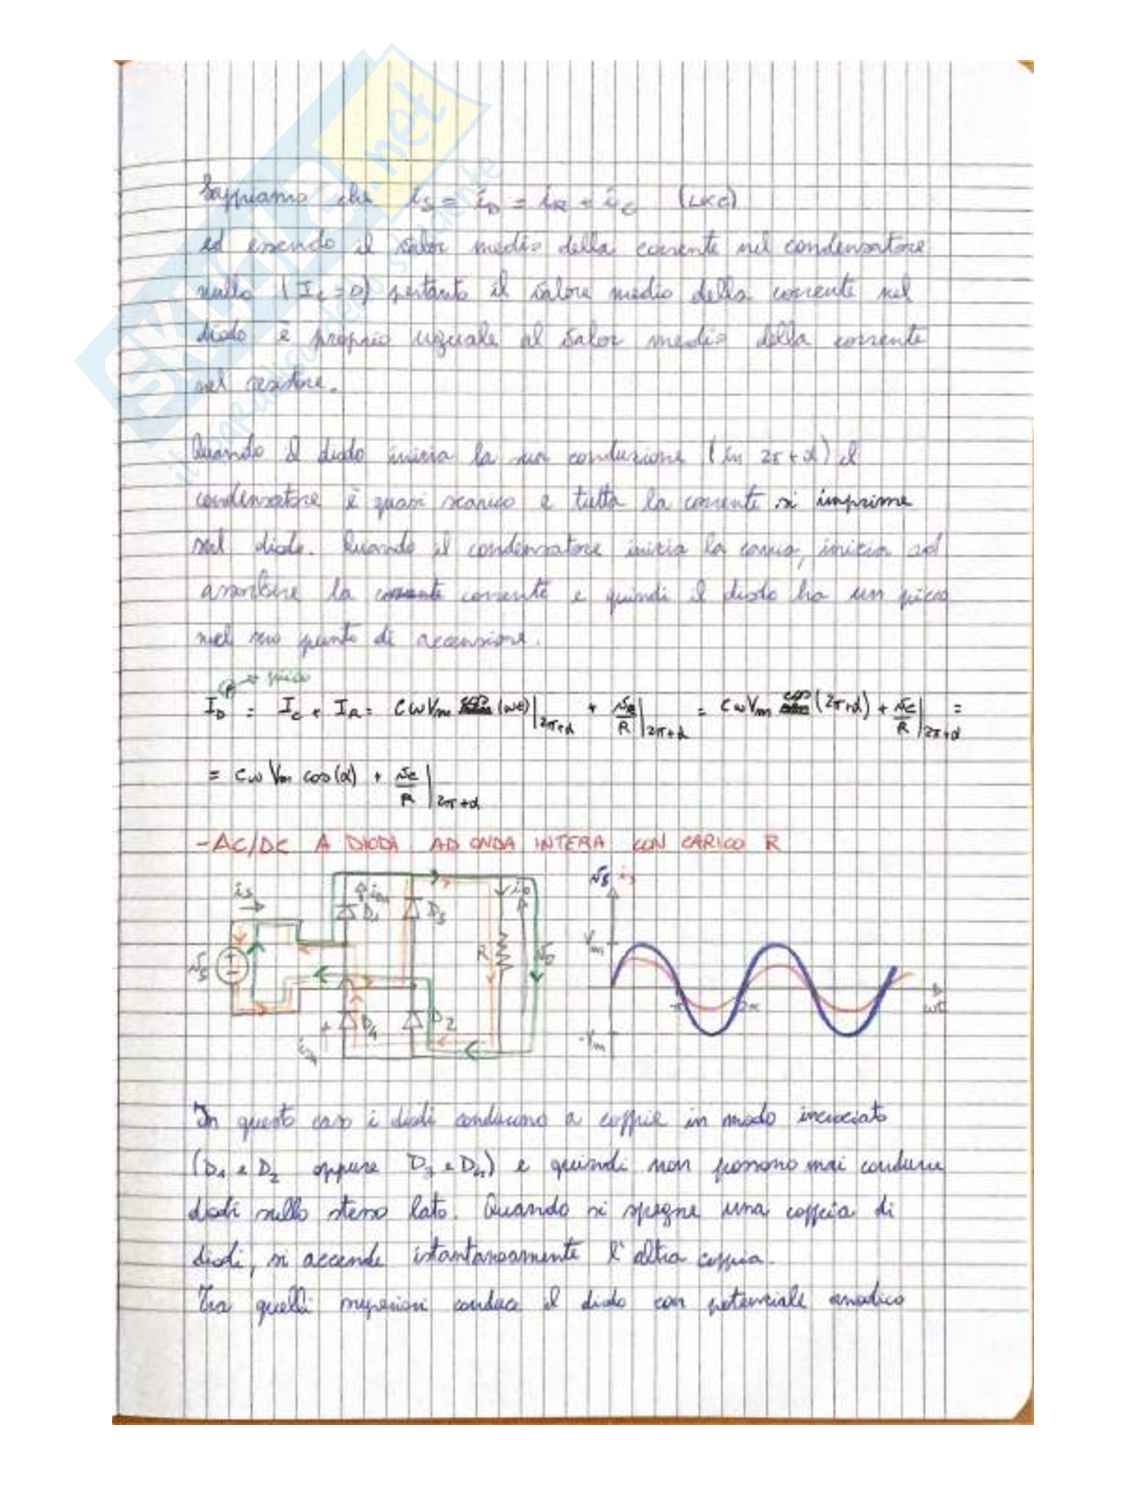 Sappiamo che is = iD = iR + iC (LKC)
ed essendo il valor medio della corrente nel condensatore
nullo (IC = 0) pertanto il valore medio della corrente nel
diodo è proprio uguale al valor medio della corrente
nel resistore.
Quando il diodo inizia la sua conduzione (in 2π+α) il
condensatore è quasi scarico e tutta la corrente si imprime
sul diodo. Quando il condensatore inizia la carica, inizia ad
assorbire la corrente e quindi il diodo ha un picco
nel suo punto di accensione.
picco
ID = IC + IR = CωVm cos(ωt)|2π+α + vR/R|2π+α = CωVm cos(2π+α) + vC/R|2π+α =
= CωVm cos(α) + vC/R|2π+α
- AC/DC A DIODI AD ONDA INTERA CON CARICO R
is
D1
D3
iO
R
vO
vS
D4
D2
vS is
Vm
-Vm
π
2π
ωt
In questo caso i diodi conducono a coppie in modo incrociato
(D1 e D2 oppure D3 e D4) e quindi non possono mai condurre
diodi sullo stesso lato. Quando si spegne una coppia di
diodi, si accende istantaneamente l'altra coppia.
Tra quelli superiori conduce il diodo con potenziale anodico
SKUOLA.net